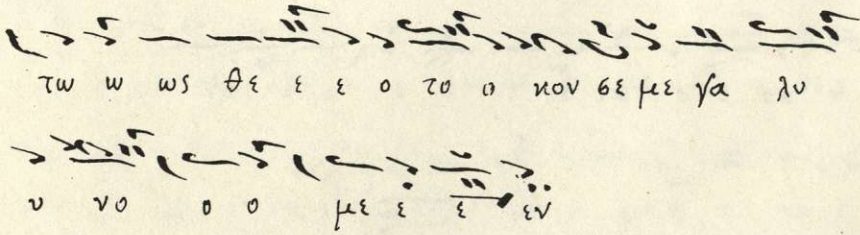 τω ω ως θε ε ε ο το ο κον σε με γα λυ
υ νο ο ο με ε ε εν